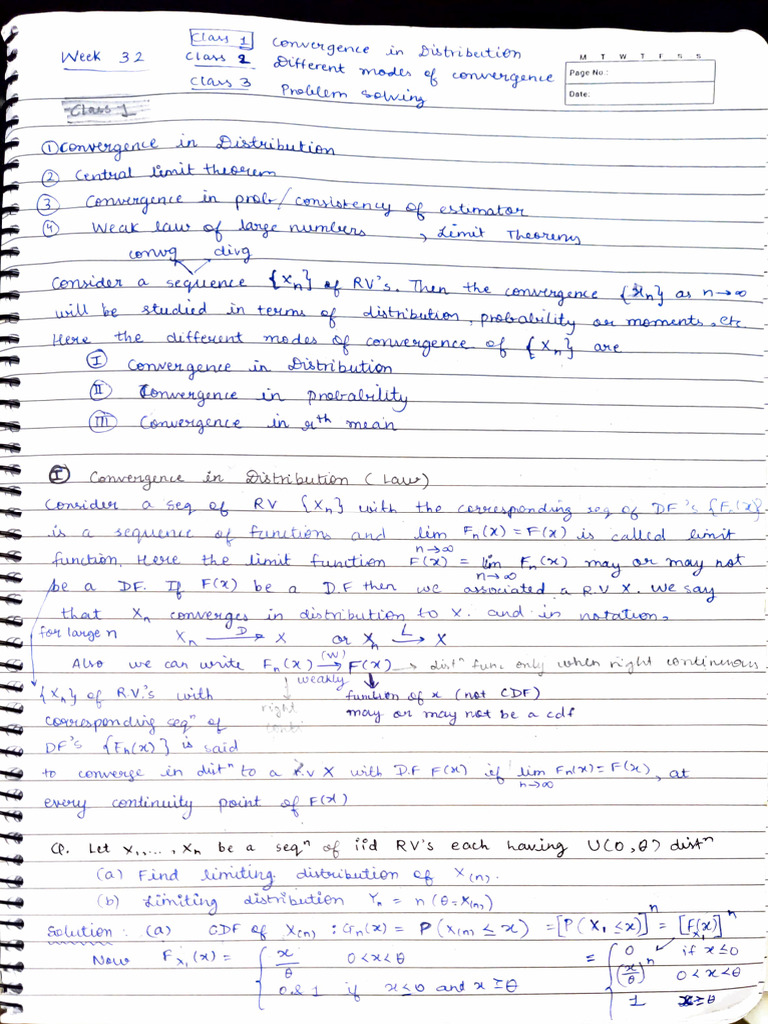 Week 32
Class 1 Convergence in Distribution
Class 2 Different modes of convergence
Class 3 Problem solving
M T W T F S S
Page No.:
Date:
Class 1
① Convergence in Distribution
② Central limit theorem
③ Convergence in prob/consistency of estimator
④ Weak law of large numbers , Limit Theorems
convg divg
Consider a sequence {Xn} of RV's. Then the convergence {Xn} as n→∞
will be studied in terms of distribution, probability or moments, etc
Here the different modes of convergence of {Xn} are
Ⓘ Convergence in Distribution
II Convergence in probability
III Convergence in rth mean
Ⓘ Convergence in Distribution (Law)
Consider a seq of RV {Xn} with the corresponding seq of DF's {Fn(x)}
is a sequence of functions and lim n→∞ Fn(x) = F(x) is called limit
function. Here the limit function F(x) = lim n→∞ Fn(x) may or may not
be a DF. If F(x) be a D.F then we associated a R.V X. We say
that Xn converges in distribution to X. and in notation,
for large n Xn —D→ X or Xn —L→ X
Also we can write Fn(x) —(W)→ F(x) → distn func only when right continuous
weakly
{Xn} of R.V.'s with function of x (not CDF)
right
corresponding seqn of may or may not be a cdf
DF's {Fn(x)} is said
to converge in distn to a R.V X with D.F F(x) if lim n→∞ Fn(x) = F(x), at
every continuity point of F(x)
Q. Let X1,..., Xn be a seqn of iid RV's each having U(0,θ) distn
(a) Find limiting distribution of X(n).
(b) Limiting distribution Yn = n(θ-X(n))
Solution: (a) CDF of X(n) : Gn(x) = P(X(n) ≤ x) = [P(X1 ≤ x)]^n = [F_X1(x)]^n
Now F_X1(x) = { x/θ 0<x<θ = { 0 if x≤0
0 & 1 if x≤0 and x≥θ (x/θ)^n 0<x<θ
1 x≥θ